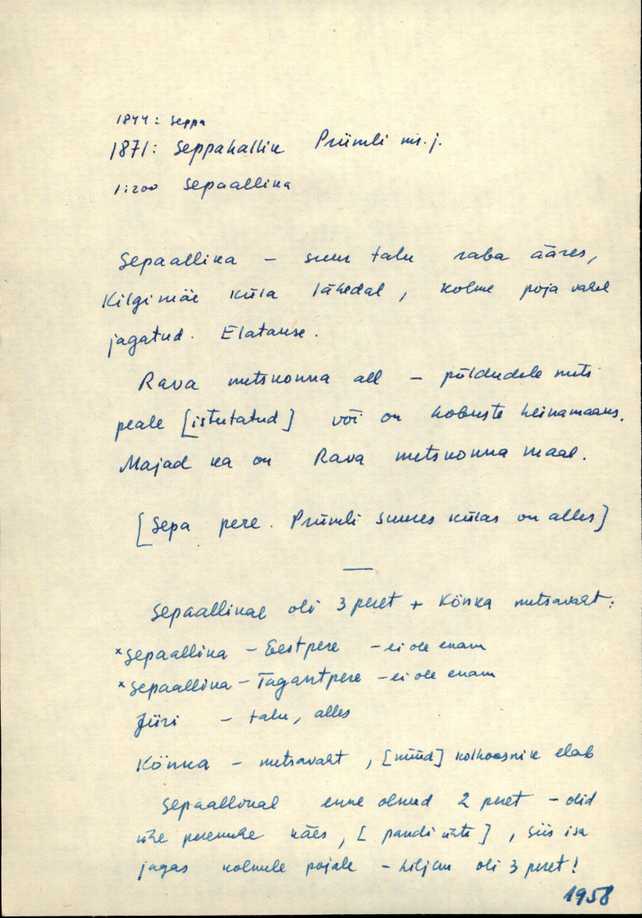 1844: Seppa
1871: Seppahallik Prümli ms. j.
1:200 Sepaallika
Sepaallika – suur talu raba ääres,
Kilgimäe küla lähedal, kolme poja vahel
jagatud. Elatakse.
Rava metskonna all – põldudele mets
peale [istutatud] või on hobuste heinamaaks.
Majad ka on Rava metskonna maal.
[Sepa pere. Prümli Suures külas on alles]
Sepaallikal oli 3 peret + Könka metsavaht:
*Sepaallika – Eestpere – ei ole enam
*Sepaallika – Tagantpere – ei ole enam
Jüri – talu, alles
Könka – metsavaht, [nüüd] kolhoosnik elab
Sepaallikal enne olnud 2 peret – olid
ühe peremehe käes, [pandi ühte], siis isa
jagas kolmele pojale – hiljem oli 3 peret!
1958